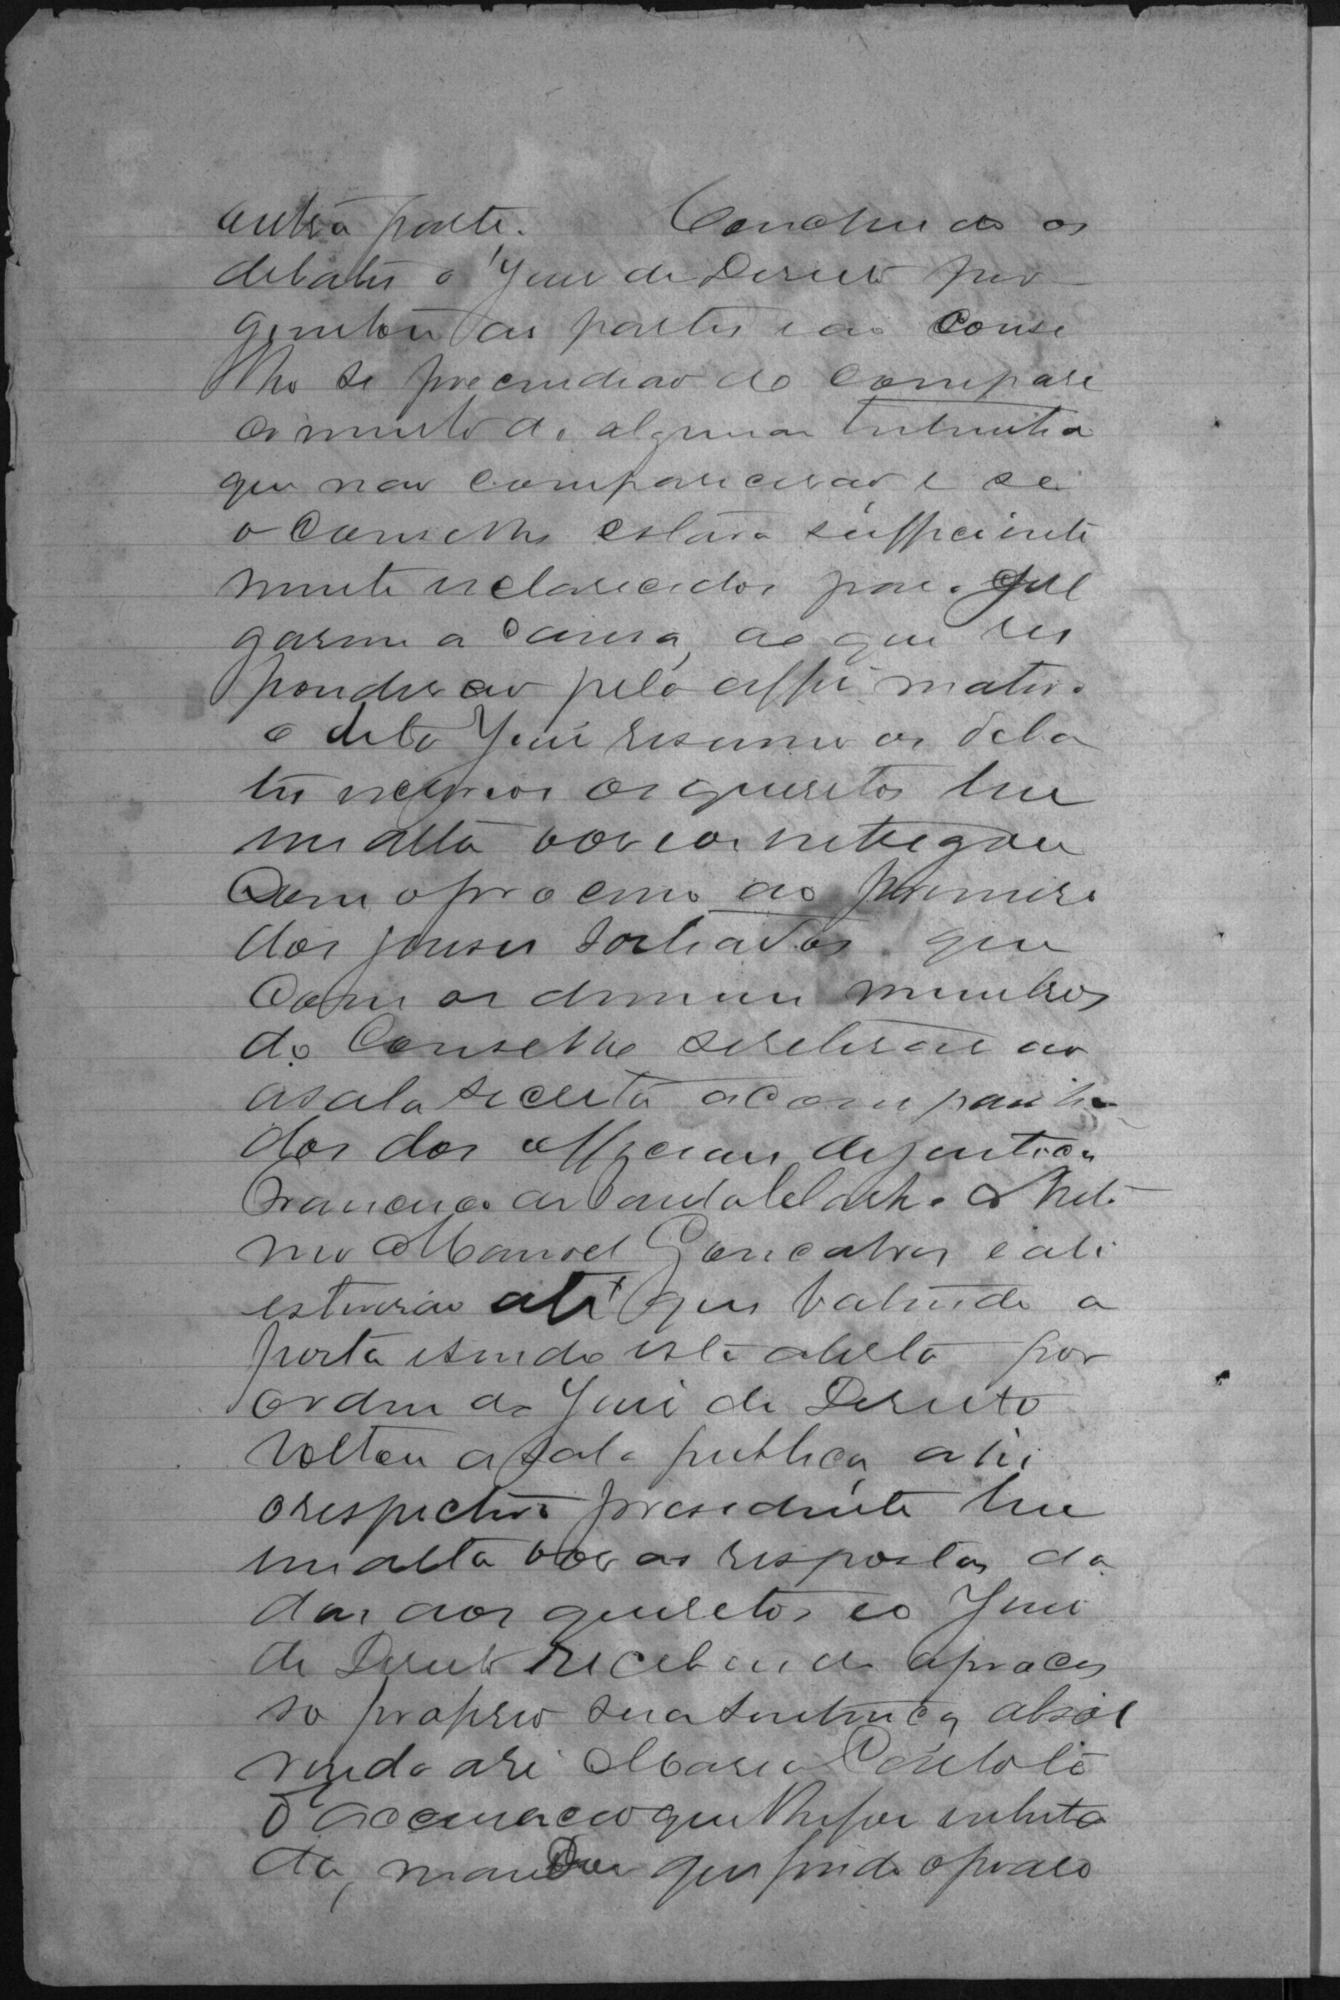 outra parte. Concluido os
debates o Juiz de Direito per
guntou as partes e ao conse
lho se precindião do compare
cimento de alguma testemunha
que não comparecerão e se
o Conselho estava sufficiente
mente esclarecidos para jul
garem a causa, ao que res
ponderão pela affirmativa
o dito Juiz resumio os deba
tes escreveo os quesitos leu
em alta voz e os entregou
com o processo ao primeiro
dos juises sorteados, que
com os demais membros
do Conselho se retirarão
a sala secreta acompanha
dos dos officiaes de justiça
Francisco de Paula
Manoel Gonçalves e ali
estiverão até que batendo a
porta e sendo esta aberta por
ordem do Juiz de Direito
voltou a sala publica, ahi
o respectivo presidente leu
em alta voz as respostas da
das aos quesitos e o Juiz
de Direito recebendo o proces
so proferio sua sentença absol
vendo a ré Maria
accusação que lhe foi intenta
da, mandou que findo o praso